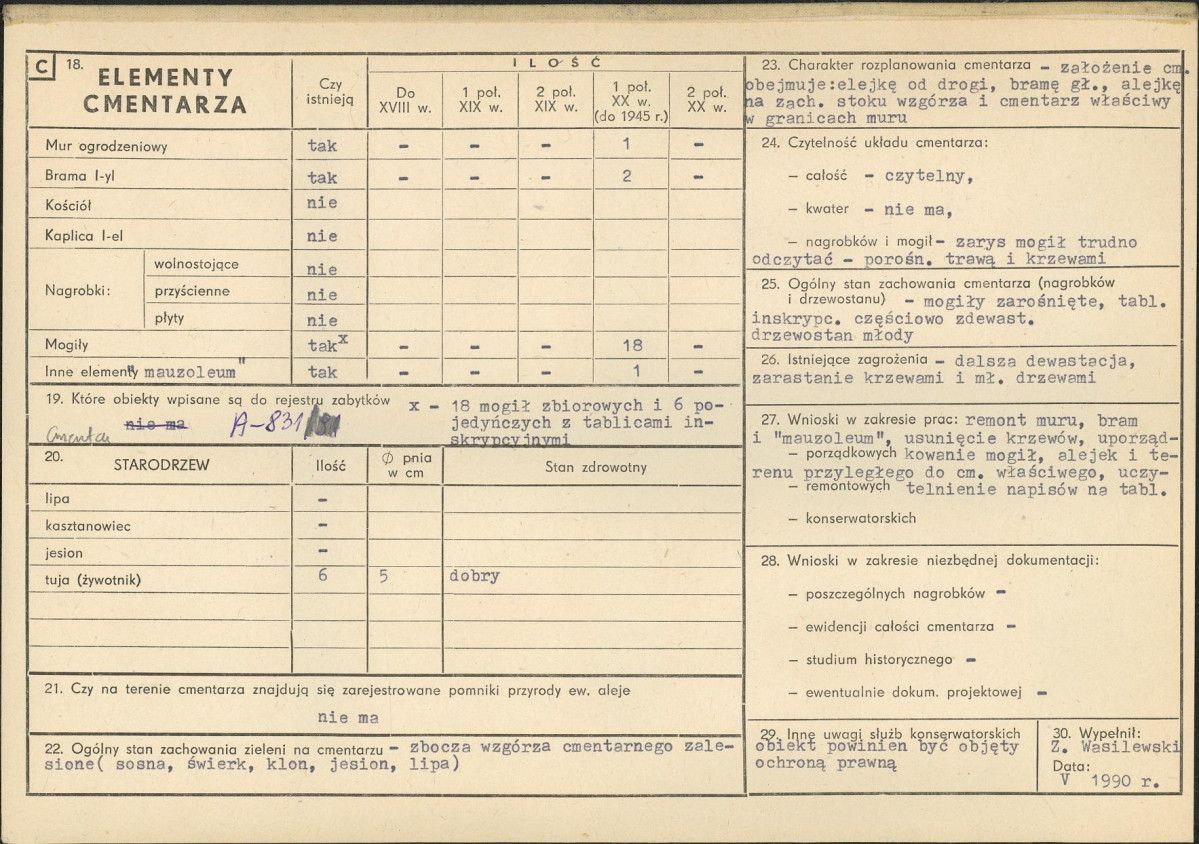 C 18. ELEMENTY CMENTARZA
Czy istnieją
ILOŚĆ
Do XVIII w.
1 poł. XIX w.
2 poł. XIX w.
1 poł. XX w. (do 1945 r.)
2 poł. XX w.
Mur ogrodzeniowy tak – – – 1 –
Brama I-yl tak – – – 2 –
Kościół nie
Kaplica I-el nie
Nagrobki:
wolnostojące nie
przyścienne nie
płyty nie
Mogiły tak x – – – 18 –
Inne elementy "mauzoleum" tak – – – 1 –
19. Które obiekty wpisane są do rejestru zabytków
nie ma A-831
x – 18 mogił zbiorowych i 6 po-
jedyńczych z tablicami in-
skrypcyjnymi
20. STARODRZEW
Ilość
Ø pnia w cm
Stan zdrowotny
lipa –
kasztanowiec –
jesion –
tuja (żywotnik) 6 5 dobry
21. Czy na terenie cmentarza znajdują się zarejestrowane pomniki przyrody ew. aleje
nie ma
22. Ogólny stan zachowania zieleni na cmentarzu – zbocza wzgórza cmentarnego zale-
sione( sosna, świerk, klon, jesion, lipa)
23. Charakter rozplanowania cmentarza – założenie cm.
obejmuje:elejkę od drogi, bramę gł., alejkę
na zach. stoku wzgórza i cmentarz właściwy
w granicach muru
24. Czytelność układu cmentarza:
– całość – czytelny,
– kwater – nie ma,
– nagrobków i mogił – zarys mogił trudno
odczytać – porośn. trawą i krzewami
25. Ogólny stan zachowania cmentarza (nagrobków
i drzewostanu) – mogiły zarośnięte, tabl.
inskrypc. częściowo zdewast.
drzewostan młody
26. Istniejące zagrożenia – dalsza dewastacja,
zarastanie krzewami i mł. drzewami
27. Wnioski w zakresie prac: remont muru, bram
i "mauzoleum", usunięcie krzewów, uporząd-
– porządkowych kowanie mogił, alejek i te-
renu przyległego do cm. właściwego, uczy-
– remontowych telnienie napisów na tabl.
– konserwatorskich
28. Wnioski w zakresie niezbędnej dokumentacji:
– poszczególnych nagrobków –
– ewidencji całości cmentarza –
– studium historycznego –
– ewentualnie dokum. projektowej –
29. Inne uwagi służb konserwatorskich
obiekt powinien być objęty
ochroną prawną
30. Wypełnił:
Z. Wasilewski
Data:
V 1990 r.